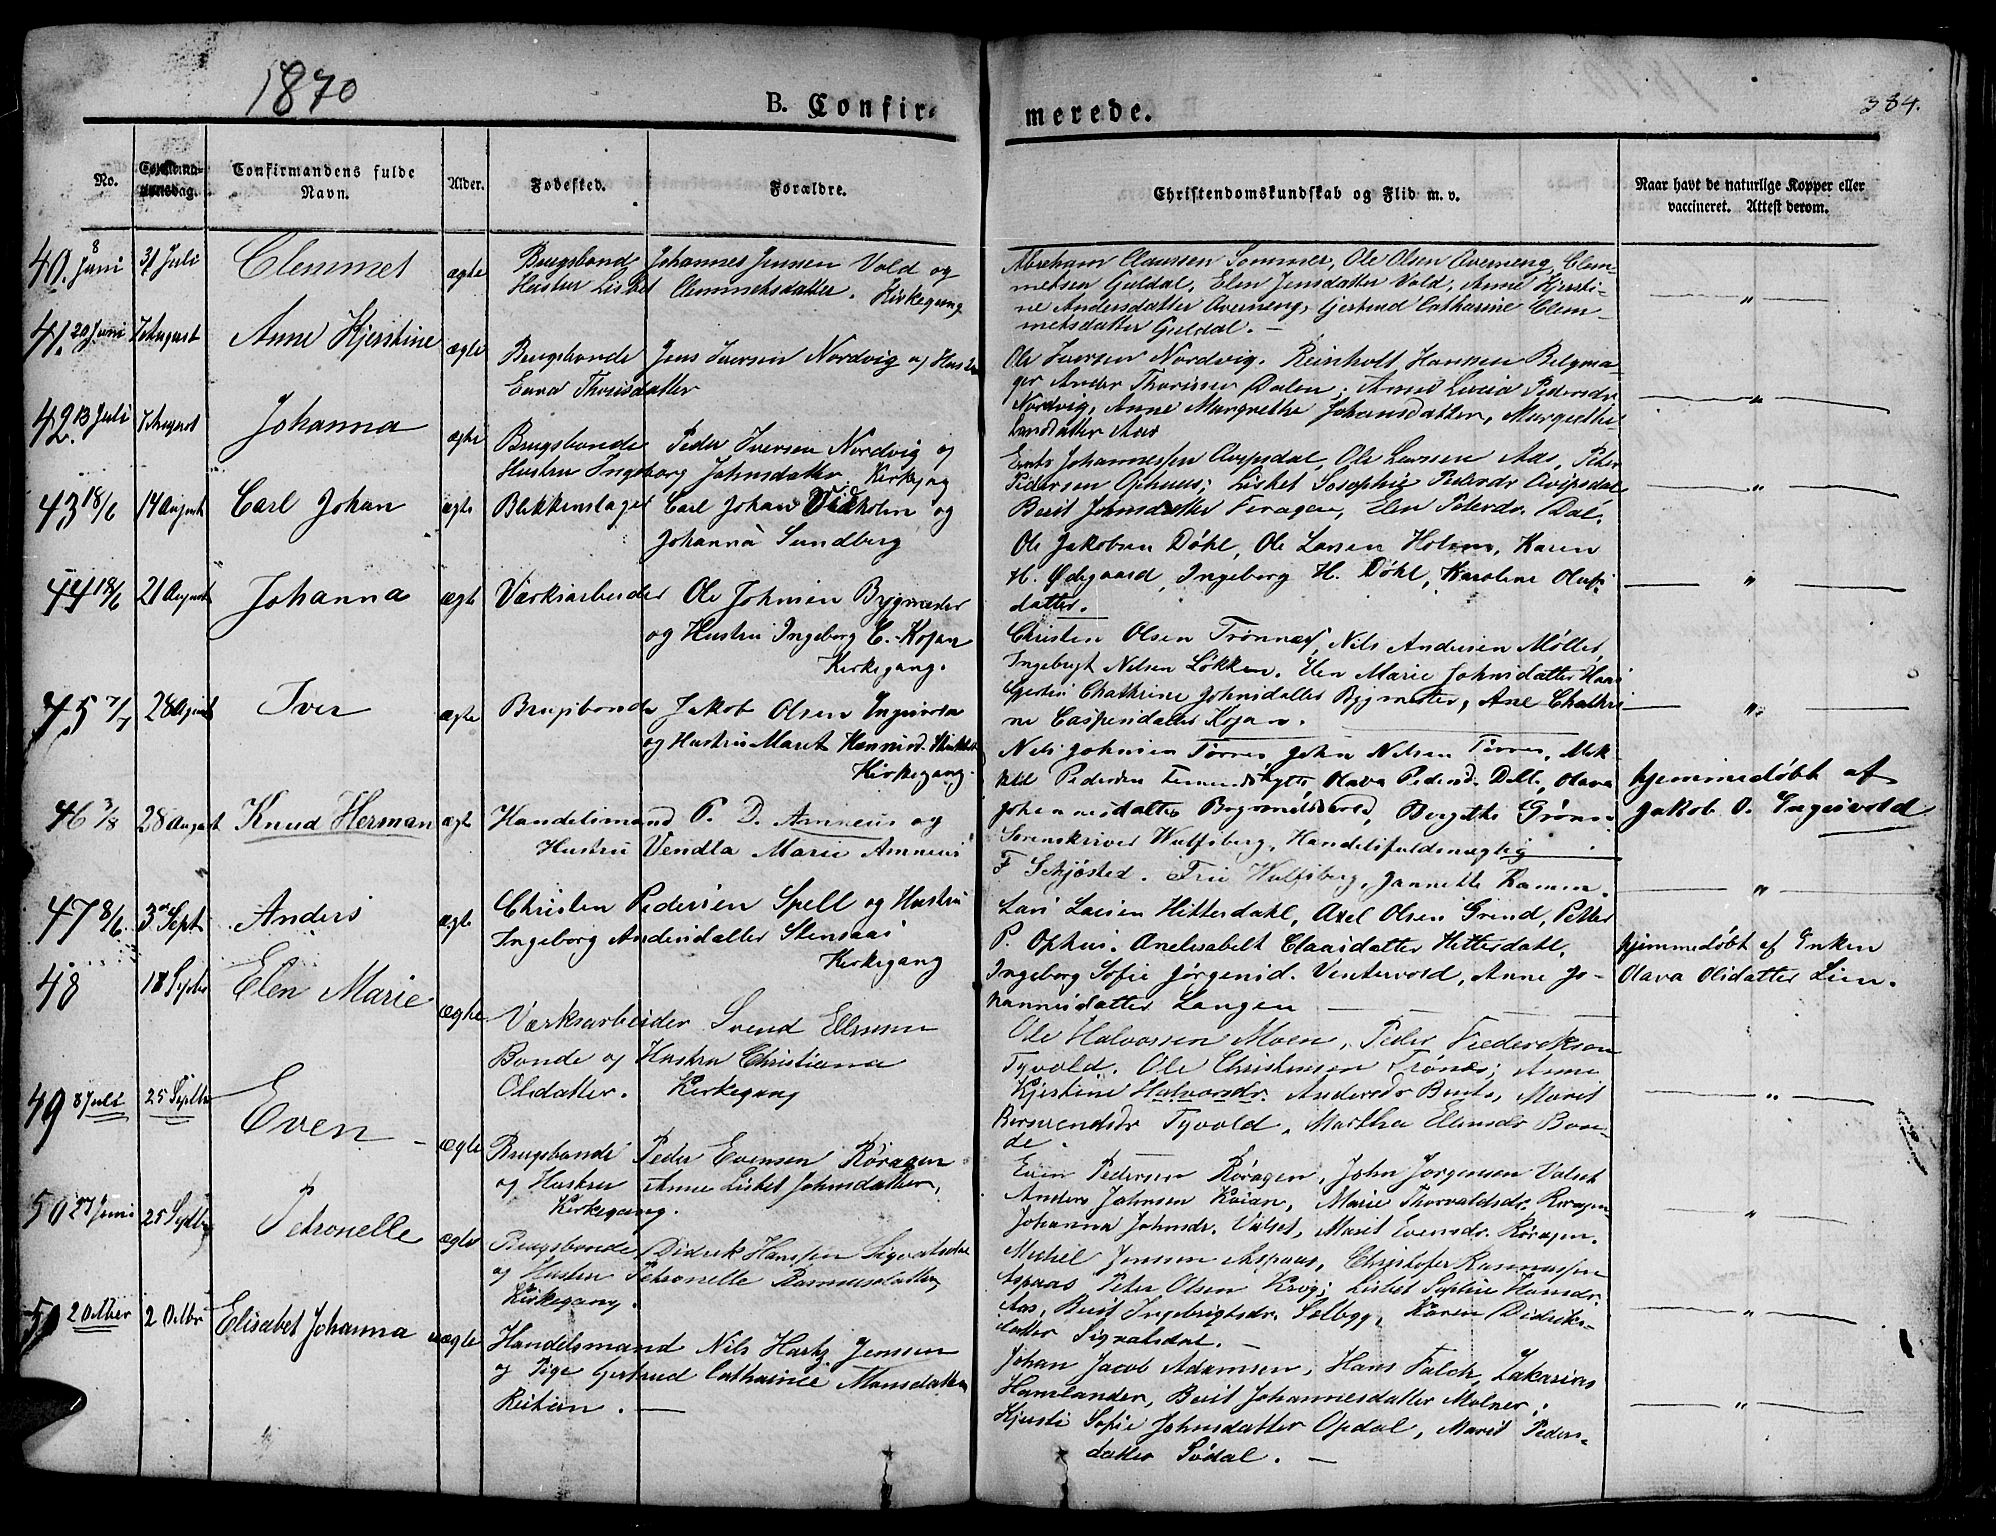 1870
B. Confirmerede.
384.
No.
Confirmandens fulde
Navn.
Alder.
Fødested.
Forældre.
Christendomskundskab og Flid m. v.
Naar havt de naturlige Kopper eller
vaccineret. Attest derom.
40. 8 Juni 31 Juli Clemmet ægte Brugsbonde Johannes Jensen Vold og
Hustru Lisbet Clemmetsdatter. Kirkegang
Abraham Claussen Sommer, Ole Olsen Avemeng, Clem-
metsen Guldal, Elen Jensdatter Vold, Anne Kjersti-
ne Andersdatter Avemeng, Gertrud Catharine Clem-
metsdatter Guldal. —
— " —
41. 20 Juni 7 August Anne Kjerstine ægte Brugsbonde Jens Iversen Nordvig og Hustru
Thorisdatter
Ole Iversen Nordvig, Reinholt Hansen Belgma-
ger Dalen, Anne Lucia Pedersdr
Nordvig, Anne Margrethe Johansdatter, Margrethe
Larsdatter Aas
— " —
42. 13 Juli 7 August Johanna ægte Brugsbonde Peder Iversen Nordvig og
Hustru Ingeborg Johnsdatter. Kirkegang
Johannessen Avipsdal, Ole Larsen Aas, Peter
Pedersen Ophuus; Lisbet Sosophie Pedersdr Avipsdal
Berit Johnsdatter Feragen, Elen Petersdr. Dal.
— " —
43 18/6 14 August Carl Johan ægte Blikkenslager Carl Johan og
Johanna Sundberg
Ole Jakobsen Døhl, Ole Larsen Holm, Karen
H. Ødegaard, Ingeborg H. Døhl, Karoline Olufs-
datter.
— " —
44 18/6 21 August Johanna ægte Værksarbeider Ole Johnsen Bygmester
og Hustru Ingeborg C. Kojan
Kirkegang.
Christen Olsen Trønnes, Nils Andersen Møller,
Ingebrigt Nelsen Løkken. Elen Marie Johnsdatter Haas
Chathrine Johnsdatter Bygmester, Ane Chathri
ne Caspersdatter Kojan.
— " —
45 7/7 28 August Iver ægte Brugsbonde Jakob Olsen Engesvolen
og Hustru Maret Hannisd.
Kirkegang.
Nels Johnsen Tørres, John Nelsen Tørres, Mik-
kel Pedersen Femundshytte, Olava Pedersd. Delt, Olava
Johannesdatter Bygmestervold, Bergitte Grønn
hjemmedøbt af
Jakob O. Engesvold
46 3/8 28 August Knud Herman ægte Handelsmand P. D. Amneus og
Hustru Vendla Marie Amneus
Sorenskriver Wulfsberg, Handelsfuldmægtig
F Schjøsted. Fru Wulfsberg, Jannette Ramm.
— " —
47 8/6. 3die Sept Anders ægte Christen Pedersen Spell og Hustru
Ingeborg Andersdatter Stensaas
Kirkegang
Lars Larsen Hitterdahl, Axel Olsen Grind, Petter
P. Ophus. Anelisabet Claasdatter Hitterdahl,
Ingeborg Sofie Jørgensd. Ventevold, Anne Jo-
hannisdatter Langen —
hjemmedøbt af Enken
Olava Olsdatter Lien.
48 18 Septbr Elen Marie ægte Værksarbeider Svend Ellensen
Bonde og Hustru Christiana
Olsdatter. Kirkegang
Ole Halvorsen Moen, Peder Frederiksen
Tyvold. Ole Christensen Trønes; Anne
Kjerstine Halvorsdr. Andersdr Bents, Marit
Tyvold, Martha Elensdr Bon-
de.
— " —
49 8 Juli 25 Septbr Even ægte Brugsbonde Peder Evensen Røragen
og Hustru Anne Lisbet Johnsdatter,
Kirkegang.
Even Pedersen Røragen, John Jørgensen Valset
Anders Johnsen Koian, Marie Thorvaldsdr. Røragen
Johanna Johnsdr. Valset, Marit Evensdr. Røragen.
— " —
50 27 Juni 25 Septbr Petronelle ægte Brugsbonde Didrik Hanssen Sigvalsdal
og Hustru Petronelle Rasmusdatter,
Kirkegang.
Mickel Jonsen Aspaas, Christofer Rasmussen
Aspaas Peter Olsen Krog; Lisbet Sophie Hansdr.
Aas, Berit Ingebrigtsdr. Solbyg, Karen Didriks-
datter Sigvalsdal. —
— " —
51 2 Octber 2 Octbr Elisabet Johanna uægte Handelsmand Nils Hartz Jenssen
og Pige Gertrud Catharine Monsdatter
Reitan. —
Johan Jacob Adamsen, Hans Falch, Zakarias
Hamlander, Berit Johannesdatter Molner;
Kjersti Sofie Johnsdatter Opdal, Marit Peders-
datter Sødal. —
— " —